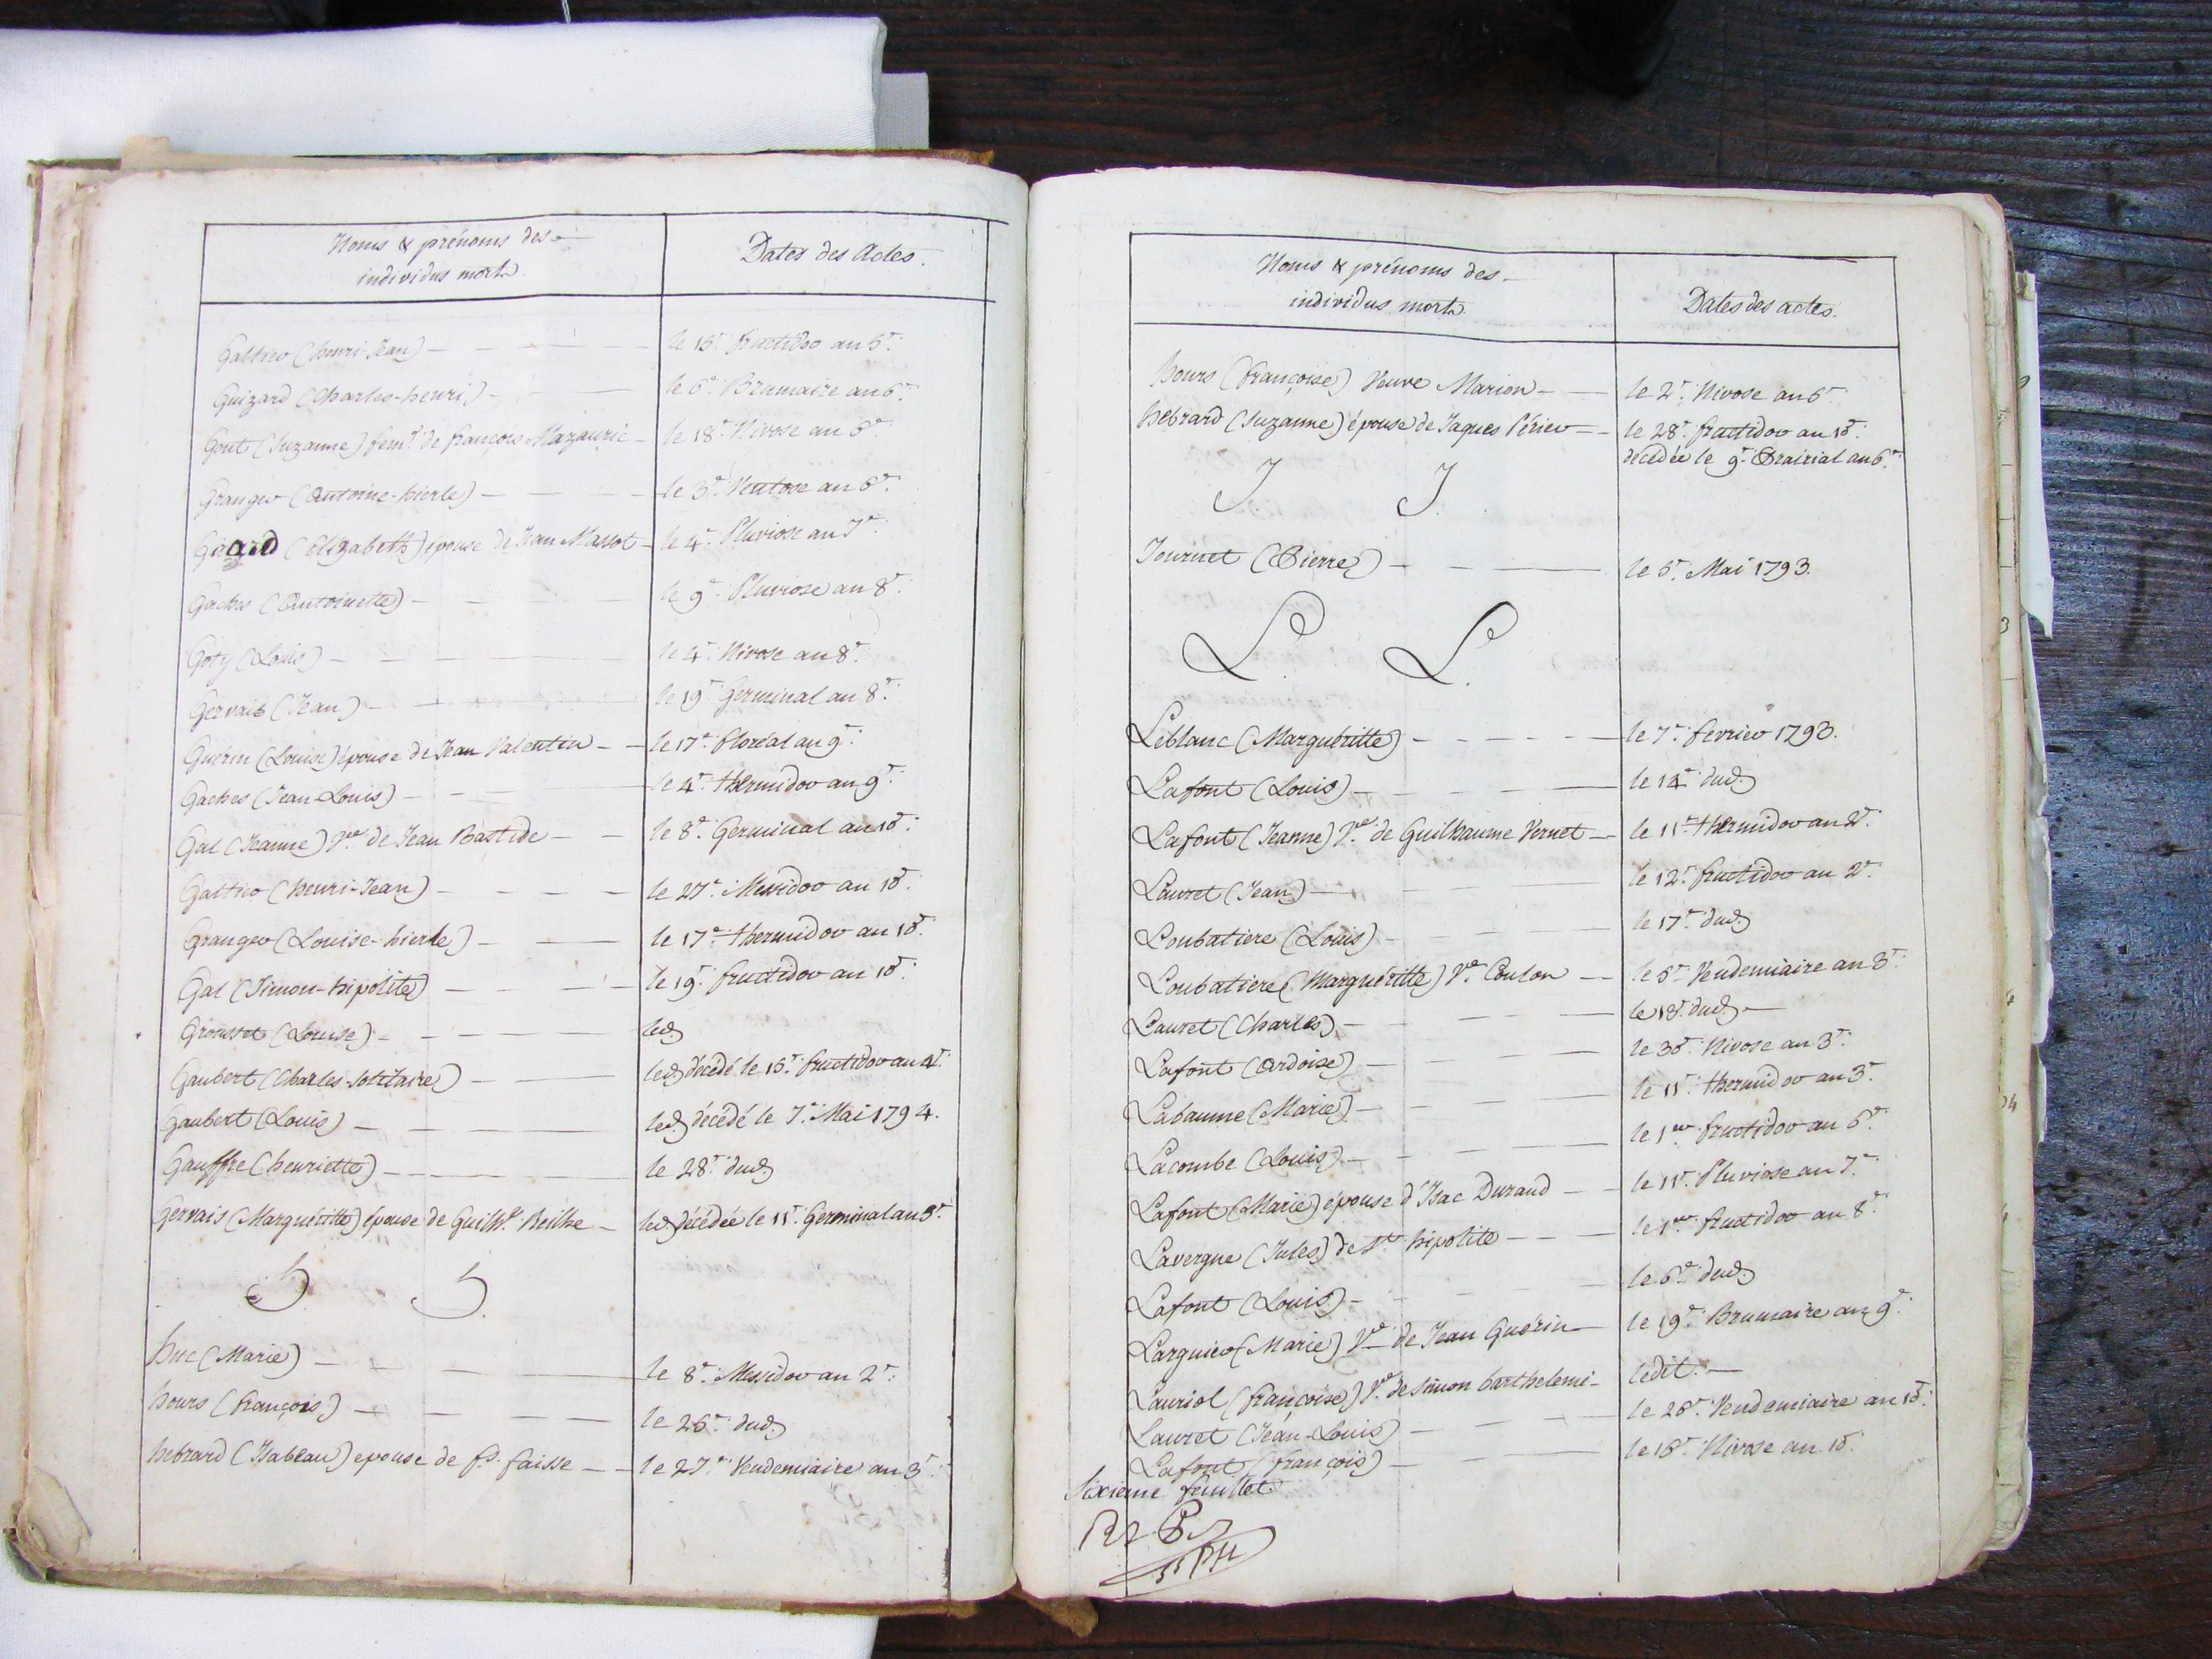 Noms & prénoms des
individus morts.
Dates des Actes.
Galtier (henri-Jean) le 15e. fructidor an 5e.
Guizard (Charles-henri) le 6e. Brumaire an 6e.
Gout (Suzanne) fem.e de françois Mazauric le 18e. Nivose an 6e.
Granger (Antoine-hierle) le 3e. Ventose an 6e.
Girard (Elizabeth) épouse de Jean Massot le 4e. Pluviose an 7e.
Gaches (Antoinette) le 9e. Pluviose an 8e.
Goty (Louis) le 4e. Nivose an 8e.
Gervais (Jean) le 19e. Germinal an 8e.
Guerin (Louise) épouse de Jean Valentin le 17e. floréal an 9e.
Gaches (Jean-Louis) le 4e. thermidor an 9e.
Gal (Jeanne) Ve. de Jean Bastide le 8e. Germinal an 10e.
Galtier (henri-Jean) le 27e. Messidor an 10e.
Granger (Louise-hierle) le 17e. thermidor an 10e.
Gal (Simon-hipolite) le 19e. fructidor an 10e.
Grousset (Louise) led.
Gaubert (Charles-solitaire) led. décédé le 15e. fructidor an 4e.
Gaubert (Louis) led. décédé le 7e. Mai 1794.
Gauffre (henriette) le 28e. dud.
Gervais (Marguéritte) épouse de Guilh.e Reilhe led. décédée le 11e. Germinal an 3e.
h h
huc (Marie) le 8e. Messidor an 2e.
hours (françois) le 26e. dud.
hebrard (Isabeau) epouse de fs. faisse le 27e. Vendemiaire an 3e.
Noms & prénoms des
individus morts
Dates des actes.
hours (françoise) Veuve Marion le 2e. Nivose an 6e.
hebrard (Suzanne) épouse de Jaques Périer le 28e. fructidor an 10e.
décédée le 9e. Prairial an 6e.
J. J.
Journet (Pierre) le 6e. Mai 1793.
L. L.
Leblanc (Marguéritte) le 7e. fevrier 1793.
Lafont (Louis) le 14e. dud.
Lafont (Jeanne) Ve. de Guilhaume Vernet le 11e. thermidor an 2e.
Lauret (Jean) le 12e. fructidor an 2e.
Loubatiere (Louis) le 17e. dud.
Loubatiere (Marguéritte) Ve. Coulon le 6e. Vendemiaire an 3e.
Lauret (Charles) le 18e. dud.
Lafont (Ardoise) le 30e. Nivose an 3e.
Labaume (Marie) le 11e. thermidor an 3e.
Lacombe (Louis) le 1er. fructidor an 6e.
Lafont (Marie) épouse d'Isac Durand le 11e. Pluviose an 7e.
Lavergne (Jules) de St. hipolite le 1er. fructidor an 8e.
Lafont (Louis) le 6e. dud.
Larguier (Marie) Ve. de Jean Guérin le 19e. Brumaire an 9e.
Lauriol (françoise) Ve. de Simon barthelemi ledit.
Lauret (Jean-Louis) le 26e. Vendemiaire an 10e.
Lafont (françois) le 16e. Nivose an 10e.
Sixieme feuillet.